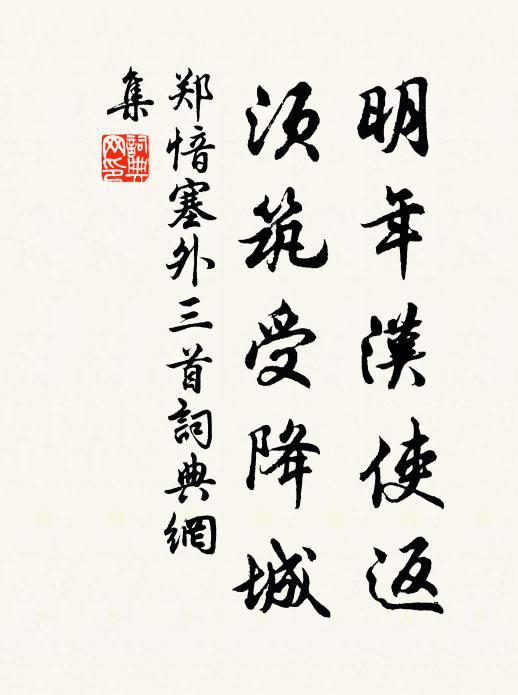 明年漢使返
须筑受降城
郑愔塞外三首詞典網
集
詞典
网印